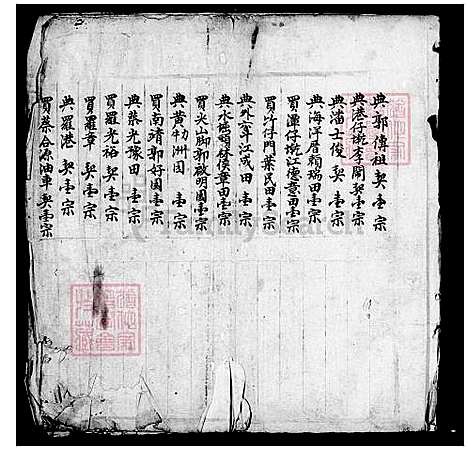 典郭傳祖契壹宗
典港仔墘李開契壹宗
典潘士俊契壹宗
典海洋厝賴瑞田壹宗
買潭仔墘江德意田壹宗
買竹仔門葉民田壹宗
典外 年江成田壹宗
典水堀頭林 章田壹宗
買火山脚郭啟明園壹宗
典黄 洲園壹宗
買南靖郭好園壹宗
典蔡光豫田壹宗
買羅光裕契壹宗
買羅章契壹宗
典羅港契壹宗
買蔡合源油車契壹宗